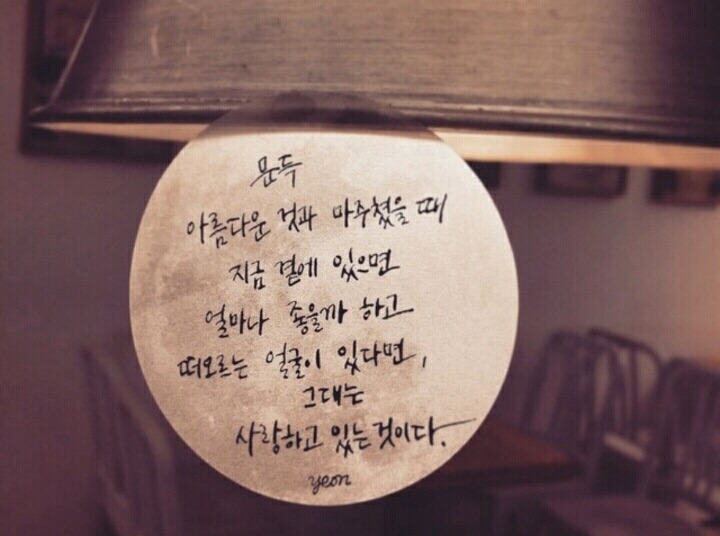 문득
아름다운 것과 마주쳤을 때
지금 곁에 있으면
얼마나 좋을까 하고
떠오르는 얼굴이 있다면,
그대는
사랑하고 있는 것이다.
yeon